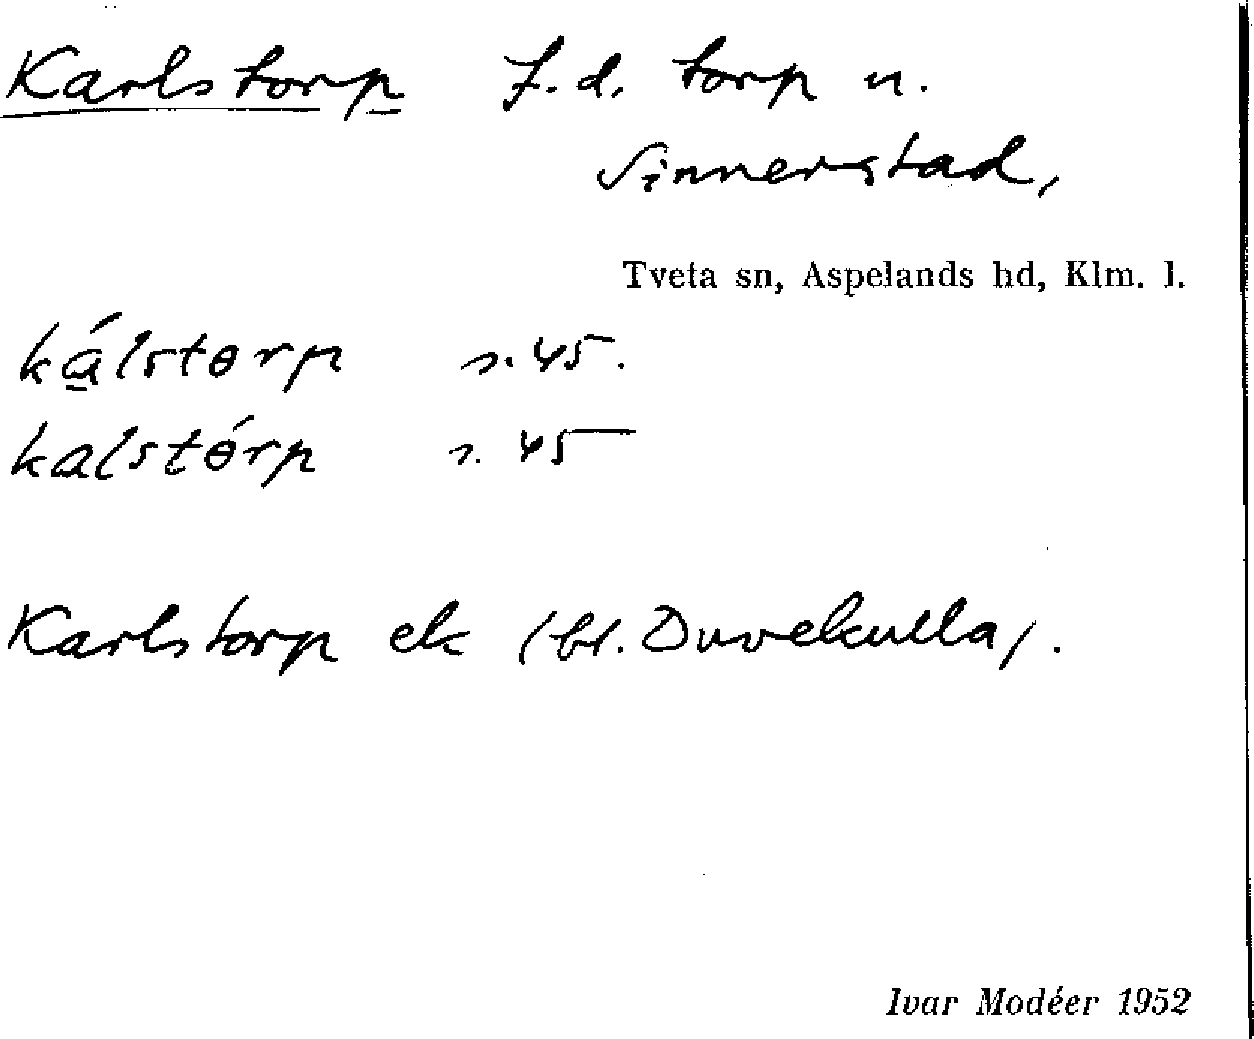 Karlstorp f.d. torp u.
Sinnerstad,
Tveta sn, Aspelands hd, Klm. l.
kálstɵrp s.45.
kalstɵ́rp s.45
Karlstorp ek (bl. Duvekulla).
Ivar Modéer 1952